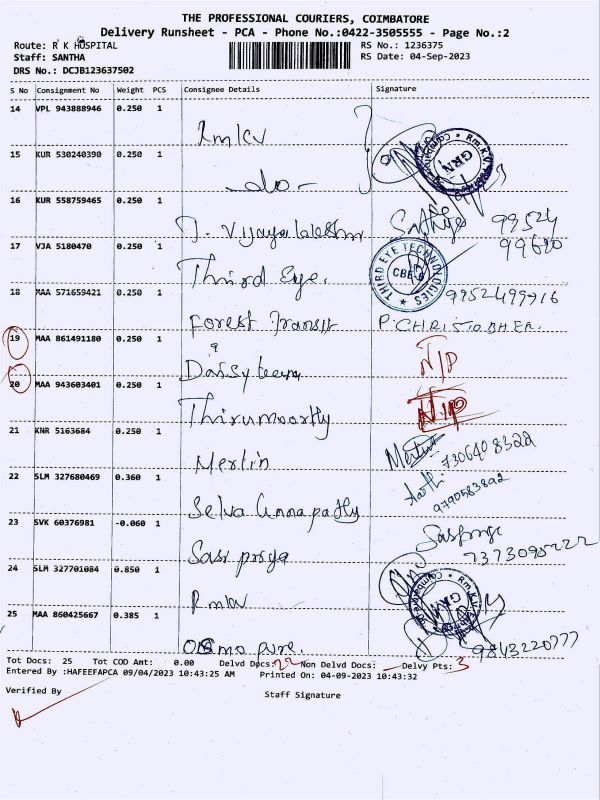 THE PROFESSIONAL COURIERS, COIMBATORE
Delivery Runsheet - PCA - Phone No.:0422-3505555 - Page No.:2
Route: R K HOSPITAL
RS No.: 1236375
Staff: SANTHA
RS Date: 04-Sep-2023
DRS No.: DCJB123637502
S No Consignment No Weight PCS Consignee Details Signature
14 VPL 943888946 0.250 1
Rmkv
15 KUR 530240390 0.250 1
do -
16 KUR 558759465 0.250 1
T. Vijayalakshmi 99524
17 VJA 5180470 0.250 1
Third Eye. THIRD EYE TECHNOLOGIES CBE-
18 MAA 571659421 0.250 1 9952499916
Forest Transit P. CHRISTOBHER.
19 MAA 861491180 0.250 1
Daisy teena N/P
20 MAA 943603401 0.250 1
Thirumoorthy N/P
21 KNR 5163684 0.250 1
Merlin 7306408322
22 SLM 327680469 0.360 1
Selva Annapathy 9790583892
23 SVK 60376981 -0.060 1
Sasi priya 7373095222
24 SLM 327701084 0.850 1
Rmkv
25 MAA 860425667 0.385 1
Osmo pure. 9843220777
Tot Docs: 25 Tot COD Amt: 0.00 Delvd Docs: 22 Non Delvd Docs: Delvy Pts: 3
Entered By :HAFEEFAPCA 09/04/2023 10:43:25 AM Printed On: 04-09-2023 10:43:32
Verified By
Staff Signature